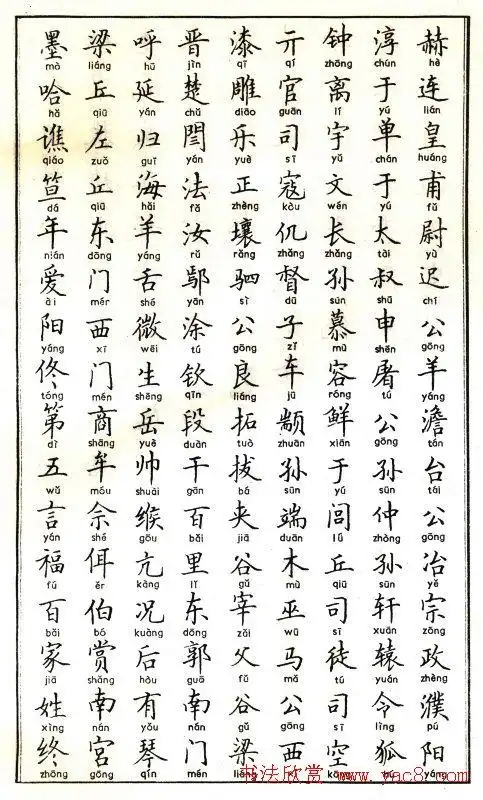 赫连皇甫尉迟公羊澹台公冶宗政濮阳
hè lián huáng fǔ yù chí gōng yáng tán tái gōng yě zōng zhèng pú yáng
淳于单于太叔申屠公孙仲孙轩辕令狐
chún yú chán yú tài shū shēn tú gōng sūn zhòng sūn xuān yuán lìng
钟离宇文长孙慕容鲜于闾丘司徒司空
zhōng lí yǔ wén zhǎng sūn mù róng xiān yú lǘ qiū sī tú sī kōng
亓官司寇仉督子车颛孙端木巫马公西
qí guān sī kòu zhǎng dū zǐ jū zhuān sūn duān mù wū mǎ gōng xī
漆雕乐正壤驷公良拓拔夹谷宰父谷梁
qī diāo yuè zhèng rǎng sì gōng liáng tuò bá jiā gǔ zǎi fù gǔ liáng
晋楚闫法汝鄢涂钦段干百里东郭南门
jìn chǔ yán fǎ rǔ yān tú qīn duàn gān bǎi lǐ dōng guō nán mén
呼延归海羊舌微生岳帅缑亢况后有琴
hū yán guī hǎi yáng shé wēi shēng yuè shuài gōu kàng kuàng hòu yǒu qín
梁丘左丘东门西门商牟佘佴伯赏南宫
liáng qiū zuǒ qiū dōng mén xī mén shāng móu shé ěr bó shǎng nán gōng
墨哈谯笪年爱阳佟第五言福百家姓终
mò hǎ qiáo dá nián ài yáng tóng dì wǔ yán fú bǎi jiā xìng zhōng
书法欣赏 www.yac8.com